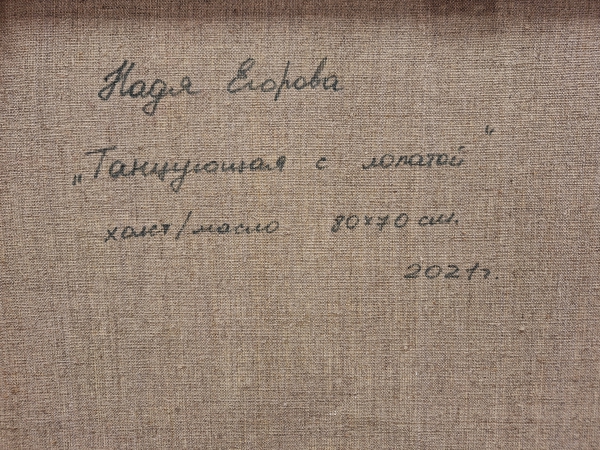 Надя Егорова
„Танцующая с лопатой"
холст/масло 80×70 см.
2021г.